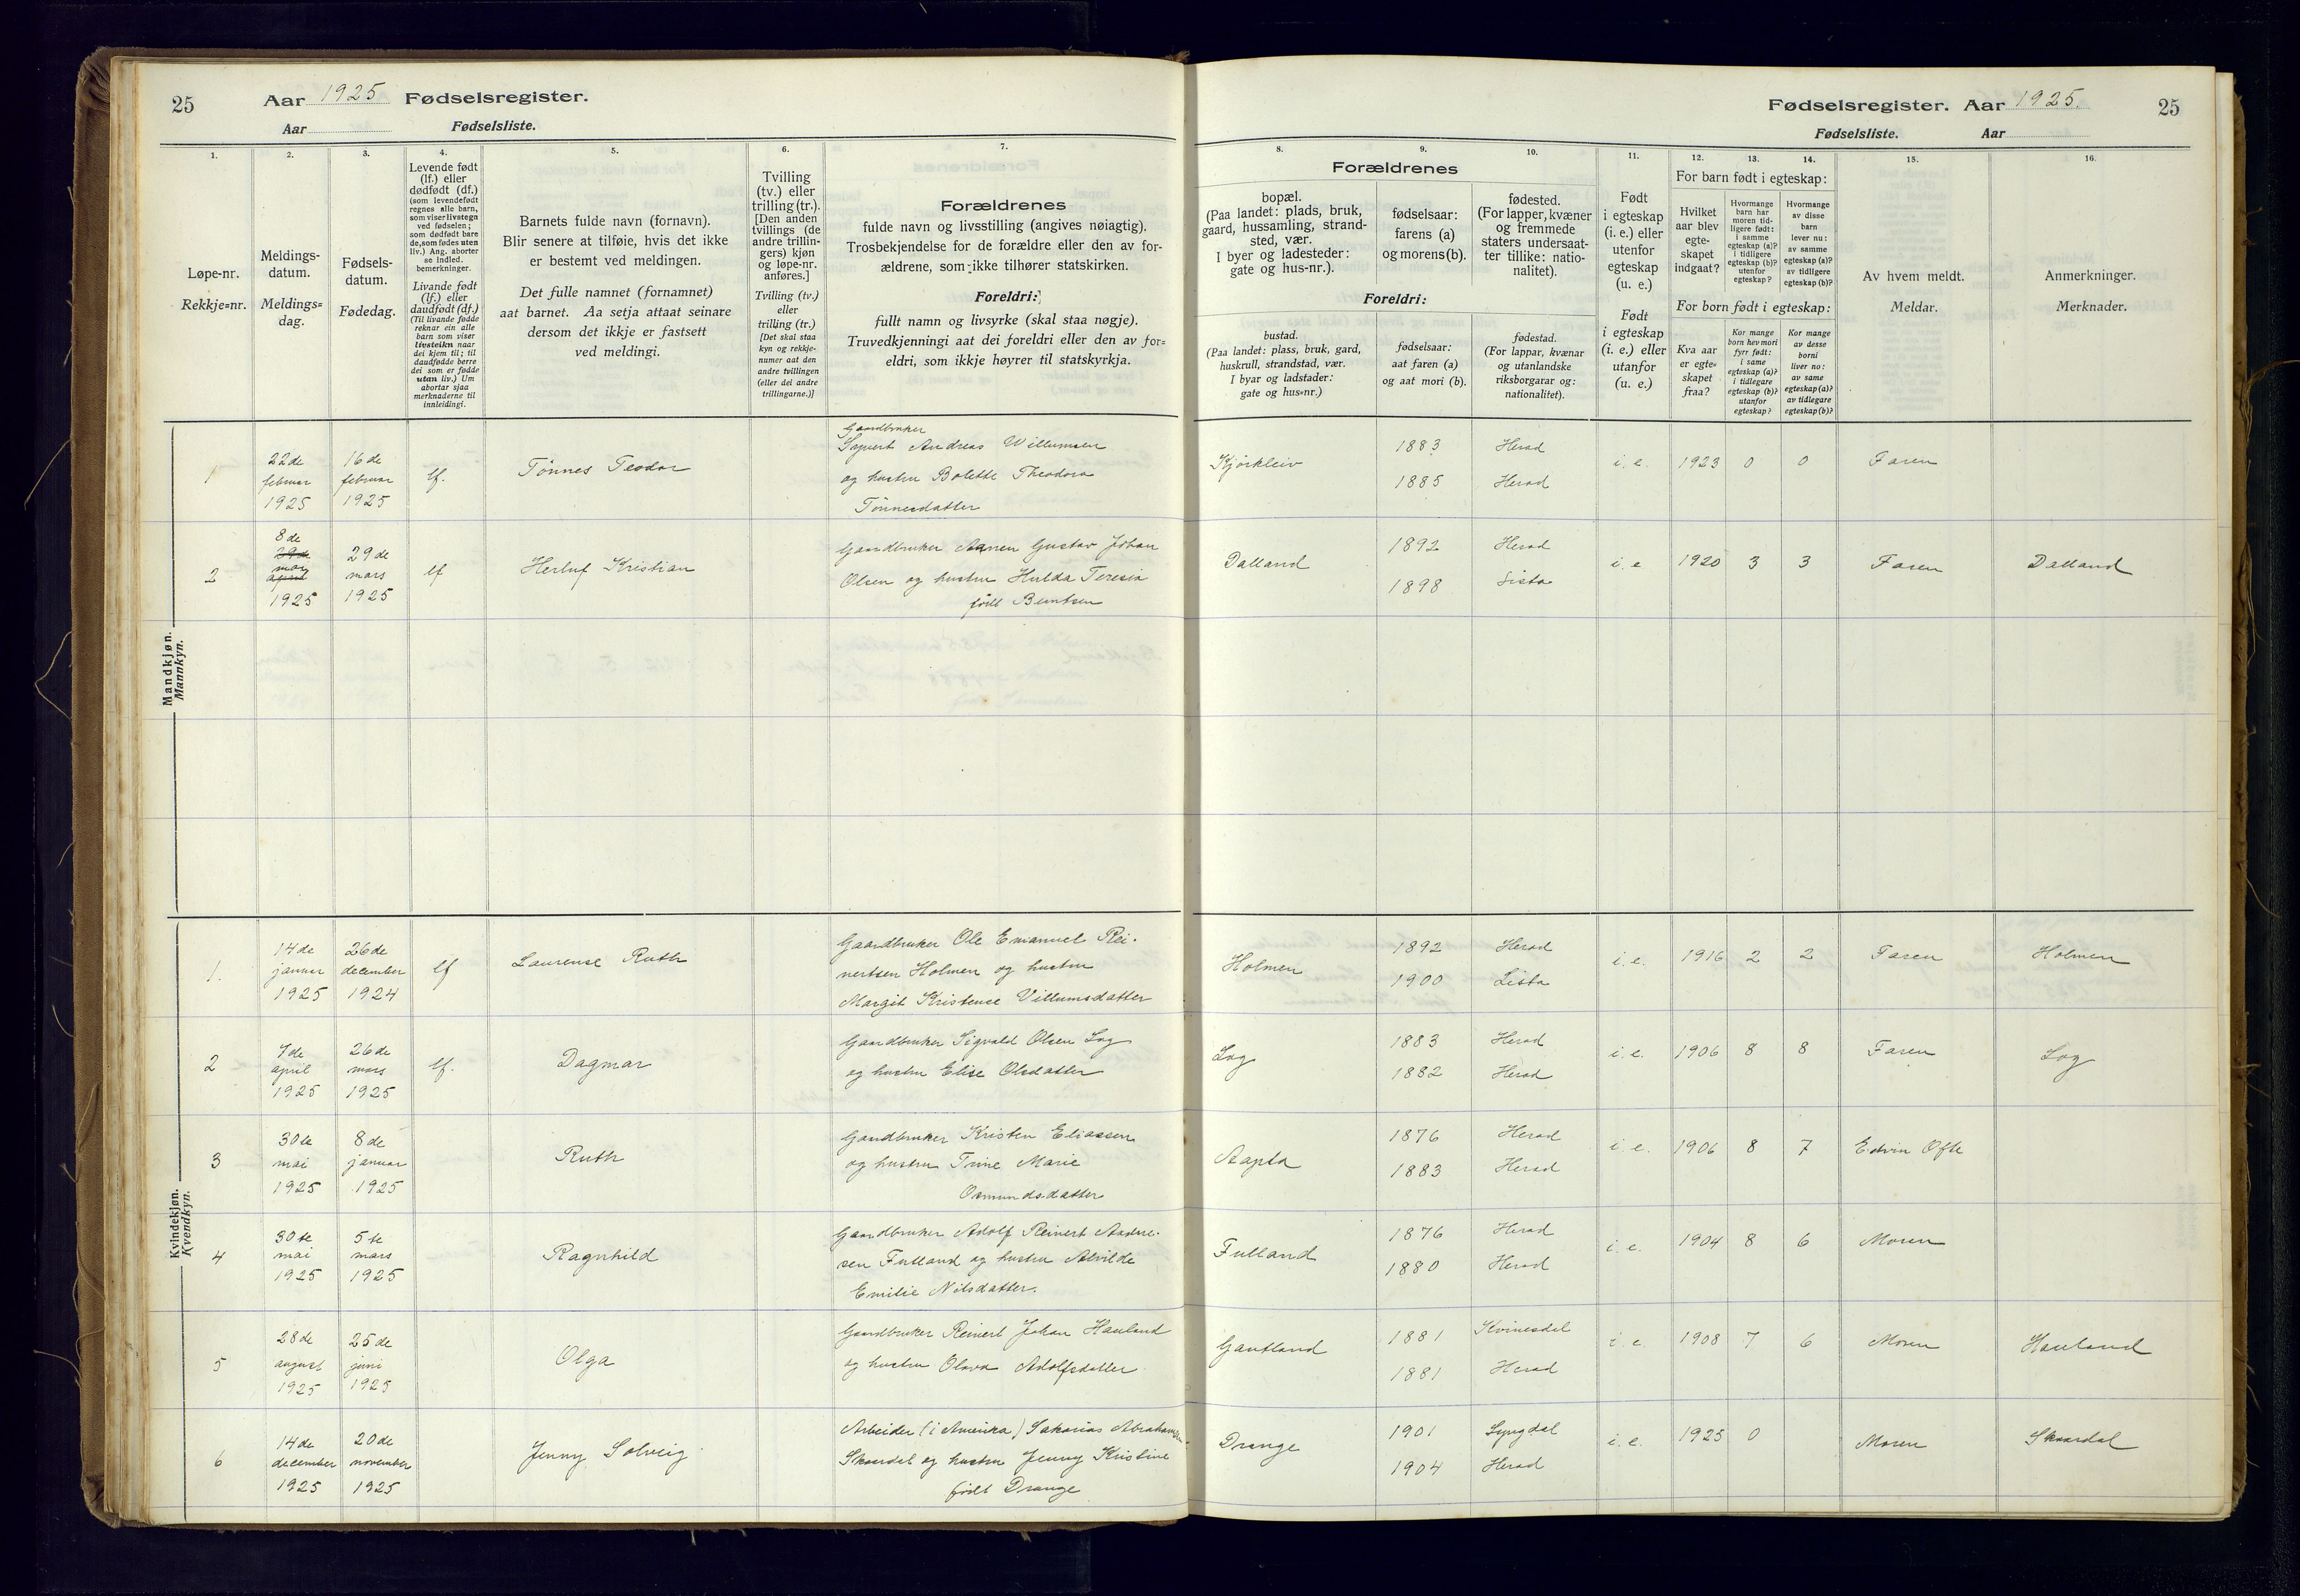 25 Aar 1925 Fødselsregister.
Aar Fødselsliste.
Fødselsregister. Aar 1925. 25
Fødselsliste. Aar
1. 2. 3. 4. 5. 6. 7.
Løpe-nr.
Rekkje=nr.
Meldings-
datum.
Meldings=
dag.
Fødsels-
datum.
Fødedag.
Levende født
(lf.) eller
dødfødt (df.)
(som levendefødt
regnes alle barn,
som viser livstegn
ved fødselen;
som dødfødt bare
de, som fødes uten
liv.) Ang. aborter
se indled.
bemerkninger.
Livande født
(lf.) eller
daudfødt (df.)
(Til livande fødde
reknar ein alle
barn som viser
livsteikn naar
dei kjem til; til
daudfødde berre
dei som er fødde
utan liv.) Um
abortar sjaa
merknaderne til
innleidingi.
Barnets fulde navn (fornavn).
Blir senere at tilføie, hvis det ikke
er bestemt ved meldingen.
Det fulle namnet (fornamnet)
aat barnet. Aa setja attaat seinare
dersom det ikkje er fastsett
ved meldingi.
Tvilling
(tv.) eller
trilling (tr.).
[Den anden
tvillings (de
andre trillin-
gers) kjøn
og løpe-nr.
anføres.]
Tvilling (tv.)
eller
trilling (tr.)
[Det skal staa
kyn og rekkje-
numer aat den
andre tvillingen
(eller dei andre
trillingarne.)]
Forældrenes
fulde navn og livsstilling (angives nøiagtig).
Trosbekjendelse for de forældre eller den av for-
ældrene, som ikke tilhører statskirken.
Foreldri:
fullt namn og livsyrke (skal staa nøgje).
Truvedkjenningi aat dei foreldri eller den av for=
eldri, som ikkje høyrer til statskyrkja.
8. 9. 10. 11. 12. 13. 14. 15. 16.
Forældrenes
bopæl.
(Paa landet: plads, bruk,
gaard, hussamling, strand-
sted, vær.
I byer og ladesteder:
gate og hus-nr.).
fødselsaar:
farens (a)
og morens (b).
fødested.
(For lapper, kvæner
og fremmede
staters undersaat-
ter tillike: natio-
nalitet).
Foreldri:
bustad.
(Paa landet: plass, bruk, gard,
huskrull, strandstad, vær.
I byar og ladstader:
gate og hus=nr.)
fødselsaar:
aat faren (a)
og aat mori (b).
fødestad.
(For lappar, kvænar
og utanlandske
riksborgarar og:
nationalitet).
Født
i egteskap
(i. e.) eller
utenfor
egteskap
(u. e.)
Født
i egteskap
(i. e.) eller
utanfor
(u. e.)
For barn født i egteskap:
Hvilket
aar blev
egte-
skapet
indgaat?
Hvormange
barn har
moren tid-
ligere født:
i samme
egteskap (a)?
i tidligere
egteskap (b)?
utenfor
egteskap?
Hvormange
av disse
barn
lever nu:
av samme
egteskap (a)?
av tidligere
egteskap (b)?
For born født i egteskap:
Kva aar
er egte=
skapet
fraa?
Kor mange
born hev mori
fyrr født:
i same
egteskap (a)?
i tidlegare
egteskap (b)?
utanfor
egteskap?
Kor mange
av desse
borni
liver no:
av same
egteskap (a)?
av tidlegare
egteskap (b)?
Av hvem meldt.
Meldar.
Anmerkninger.
Merknader.
Mandkjøn.
Mannkyn.
1 22de februar 1925 16de februar 1925 lf. Tønnes Teodor
Gaardbruker
Sigvert Andreas Willumsen
og hustru Bolette Theodora
Tønnesdatter
Kjørkleiv 1883 Herad i. e. 1923 0 0 Faren
1885 Herad
2 8de 29de mai april 1925 29de mars 1925 lf Herluf Kristian
Gaardbruker Aanen Gustav Johan
Olsen og hustru Hulda Teresia
født Berntsen
Dalland 1892 Herad i. e 1920 3 3 Faren Dalland
1898 Lista
Kvindekjøn.
Kvendkyn.
1. 14de januar 1925 26de december 1924 lf Laurense Ruth
Gaardbruker Ole Emanuel Rei-
nertsen Holmen og hustru
Margit Kristense Villumsdatter
Holmen 1892 Herad i. e. 1916 2 2 Faren Holmen
1900 Lista
2 7de april 1925 26de mars 1925 lf. Dagmar
Gaardbruker Sigvald Olsen Log
og hustru Elise Olsdatter
Log 1883 Herad i. e. 1906 8 8 Faren Log
1882 Herad
3 30te mai 1925 8de januar 1925 Ruth
Gaardbruker Kristen Eliassen
og hustru Trine Marie
Osmundsdatter
Aapta 1876 Herad i. e. 1906 8 7 Edvin Ofte
1883 Herad
4 30te mai 1925 5te mars 1925 Ragnhild
Gaardbruker Adolf Reinert Andre-
sen Futland og hustru Alvilde
Emilie Nilsdatter.
Fulland 1876 Herad i. e. 1904 8 6 Moren
1880 Herad
5 28de august 1925 25de juni 1925 Olga
Gaardbruker Reinert Johan Hauland
og hustru Olava Adolfsdatter
Gautland 1881 Kvinesdal i. e. 1908 7 6 Moren Hauland
1881 Herad
6 14de december 1925 20de november 1925 Jenny Solveig
Arbeider (i Amerika) Sakarias Abrahamsen
Skaardal og hustru Jenny Kristine
født Drange
Drange 1901 Lyngdal i. e. 1925 0 Moren Skaardal
1904 Herad